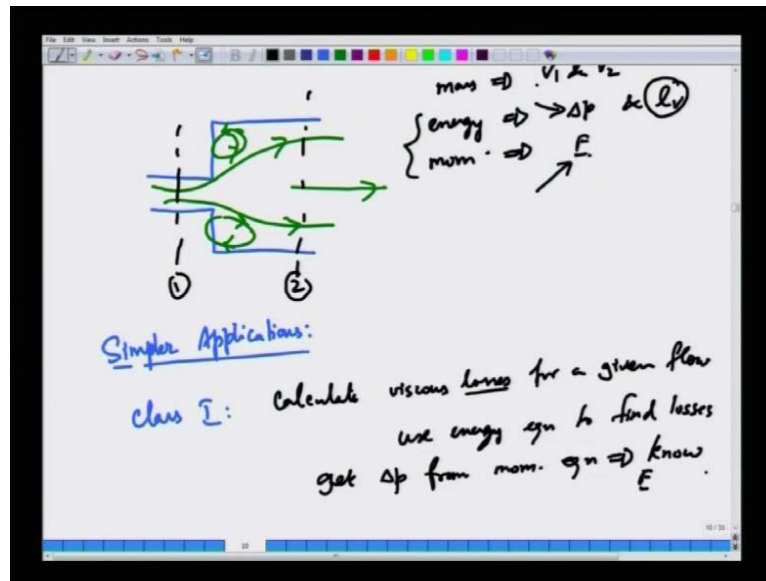 File Edit View Insert Actions Tools Help
mass ⇒ V1 & V2
energy ⇒ → Δp & lv
mom. ⇒ F
1 2
Simpler Applications:
class I: Calculate viscous losses for a given flow
use energy eqn to find losses
get Δp from mom. eqn ⇒ know F
10